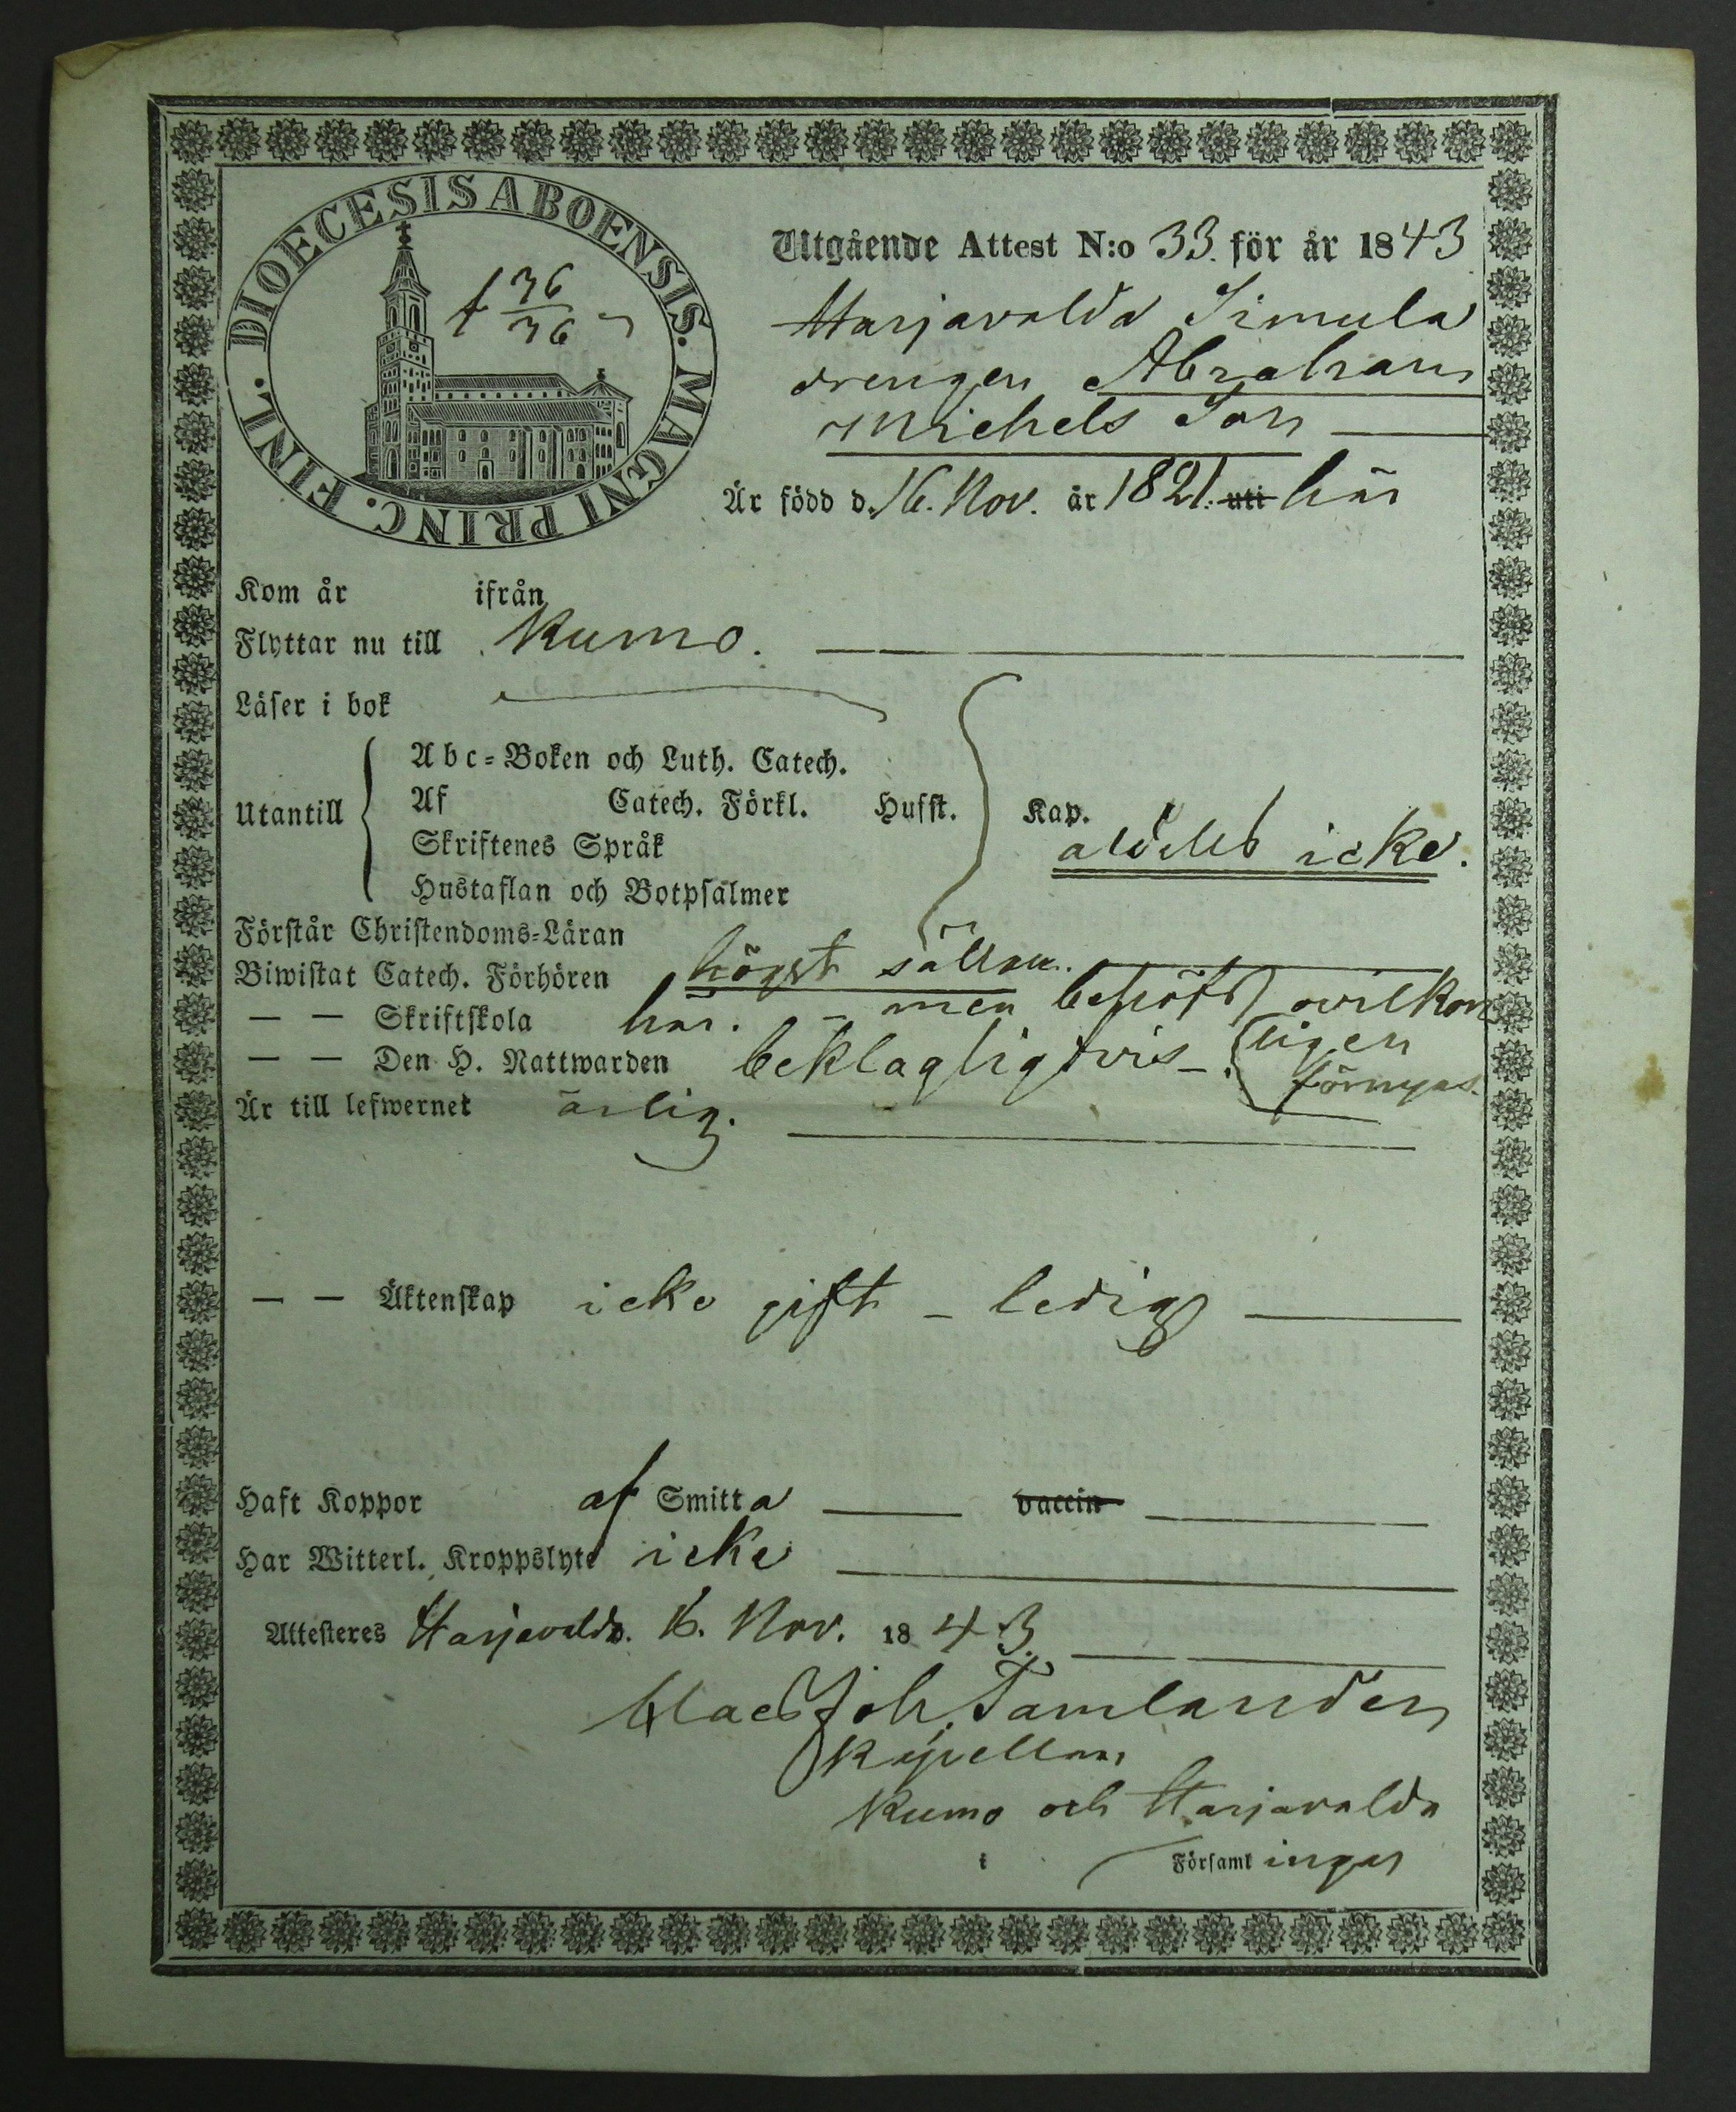 DIOECESIS ABOENSIS. MAGNI PRINC. FINL.
t 36/36
Utgående Attest N:o 33. för år 1843
Harjavalda Simula
drengen Abraham
Michels Son
Är född d. 16. Nov. år 1821. uti här
Kom år ifrån
Flyttar nu till Kumo.
Läser i bok
Utantill
Abc-Boken och Luth. Catech.
Af Catech. Förkl. Husst. Kap.
Skriftenes Språk
Hustaflan och Botpsalmer
aldeles icke.
Förstår Christendoms-Läran
Biwistat Catech. Förhören högst sällan.
— — Skriftskola här. - men behöfs ovilkor
— — Den H. Nattwarden beklagligtvis -. ligen
förnyas.
Är till lefwernet ärlig.
— — Äktenskap icke gift - ledig
Haft Koppor af Smitta vaccin
Har Witterl. Kroppslyte icke
Attesteres Harjavalda. 16. Nov. 1843.
Claes Joh. Tamlander
Kapellan
Kumo och Harjavalda
i Församlingar